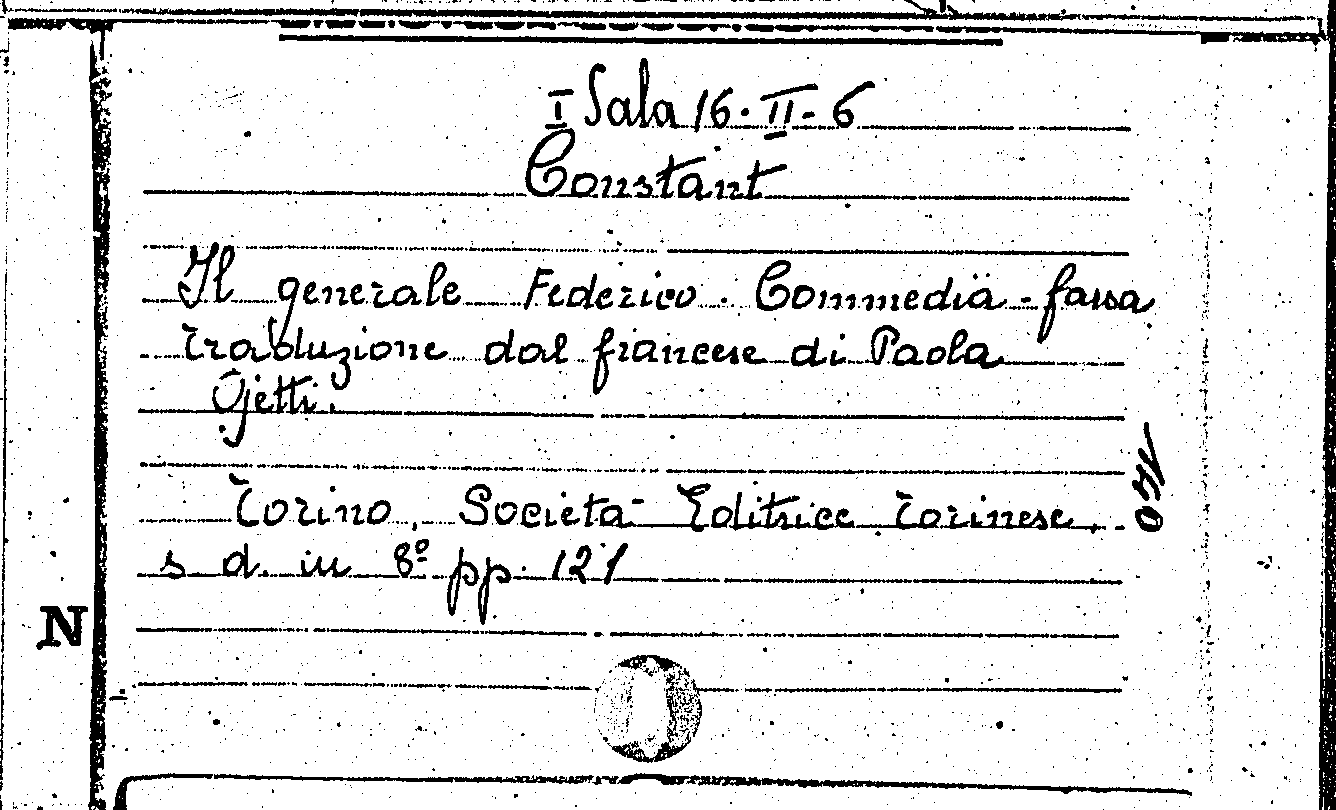 I Sala 16. II - 6
Constant
Il generale Federico. Commedia - farsa
traduzione dal francese di Paola
Ojetti.
Torino, Società Editrice Torinese,
s d. in 8º pp. 121
N